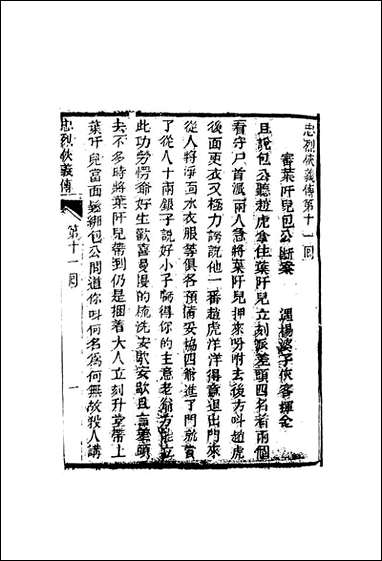 忠烈俠義傳第十一回
審葉阡兒包公斷案 遇楊婆子俠客揮金
且說包公聽趙虎拿住葉阡兒立刻派差頭四名着兩個
看守尸首派兩人急將葉阡兒押來吩咐去後方叫趙虎
後面更衣又極力誇說他一番趙虎洋洋得意退出門來
從人將淨面水衣服等俱各預備妥協四爺進了門就賞
了從人十兩銀子說好小子虧得你的主意老爺方能立
此功勞愣爺好生歡喜慢慢的梳洗安歇安歇且言差頭
去不多時將葉阡兒帶到仍是捆着大人立刻升堂帶上
葉阡兒當面鬆綁包公問道你叫何名為何無故殺人講
忠烈俠義傳 第十一回 一